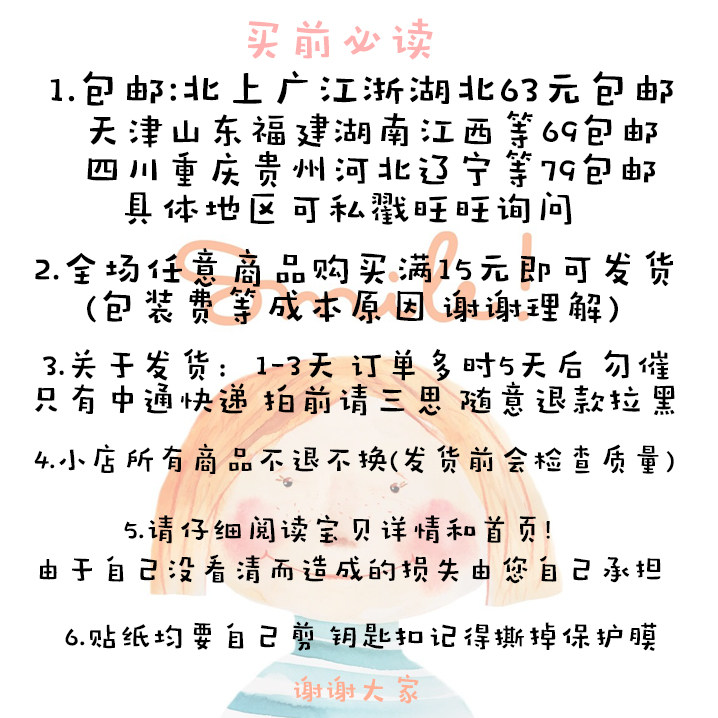 买前必读
1.包邮:北上广江浙湖北63元包邮
天津山东福建湖南江西等69包邮
四川重庆贵州河北辽宁等79包邮
具体地区可私戳旺旺询问
Smile!
2.全场任意商品购买满15元即可发货
(包装费等成本原因 谢谢理解)
3.关于发货：1-3天 订单多时5天后 勿催
只有中通快递 拍前请三思 随意退款拉黑
4.小店所有商品不退不换(发货前会检查质量)
5.请仔细阅读宝贝详情和首页!
由于自己没看清而造成的损失由您自己承担
6.贴纸均要自己剪 钥匙扣记得撕掉保护膜
谢谢大家